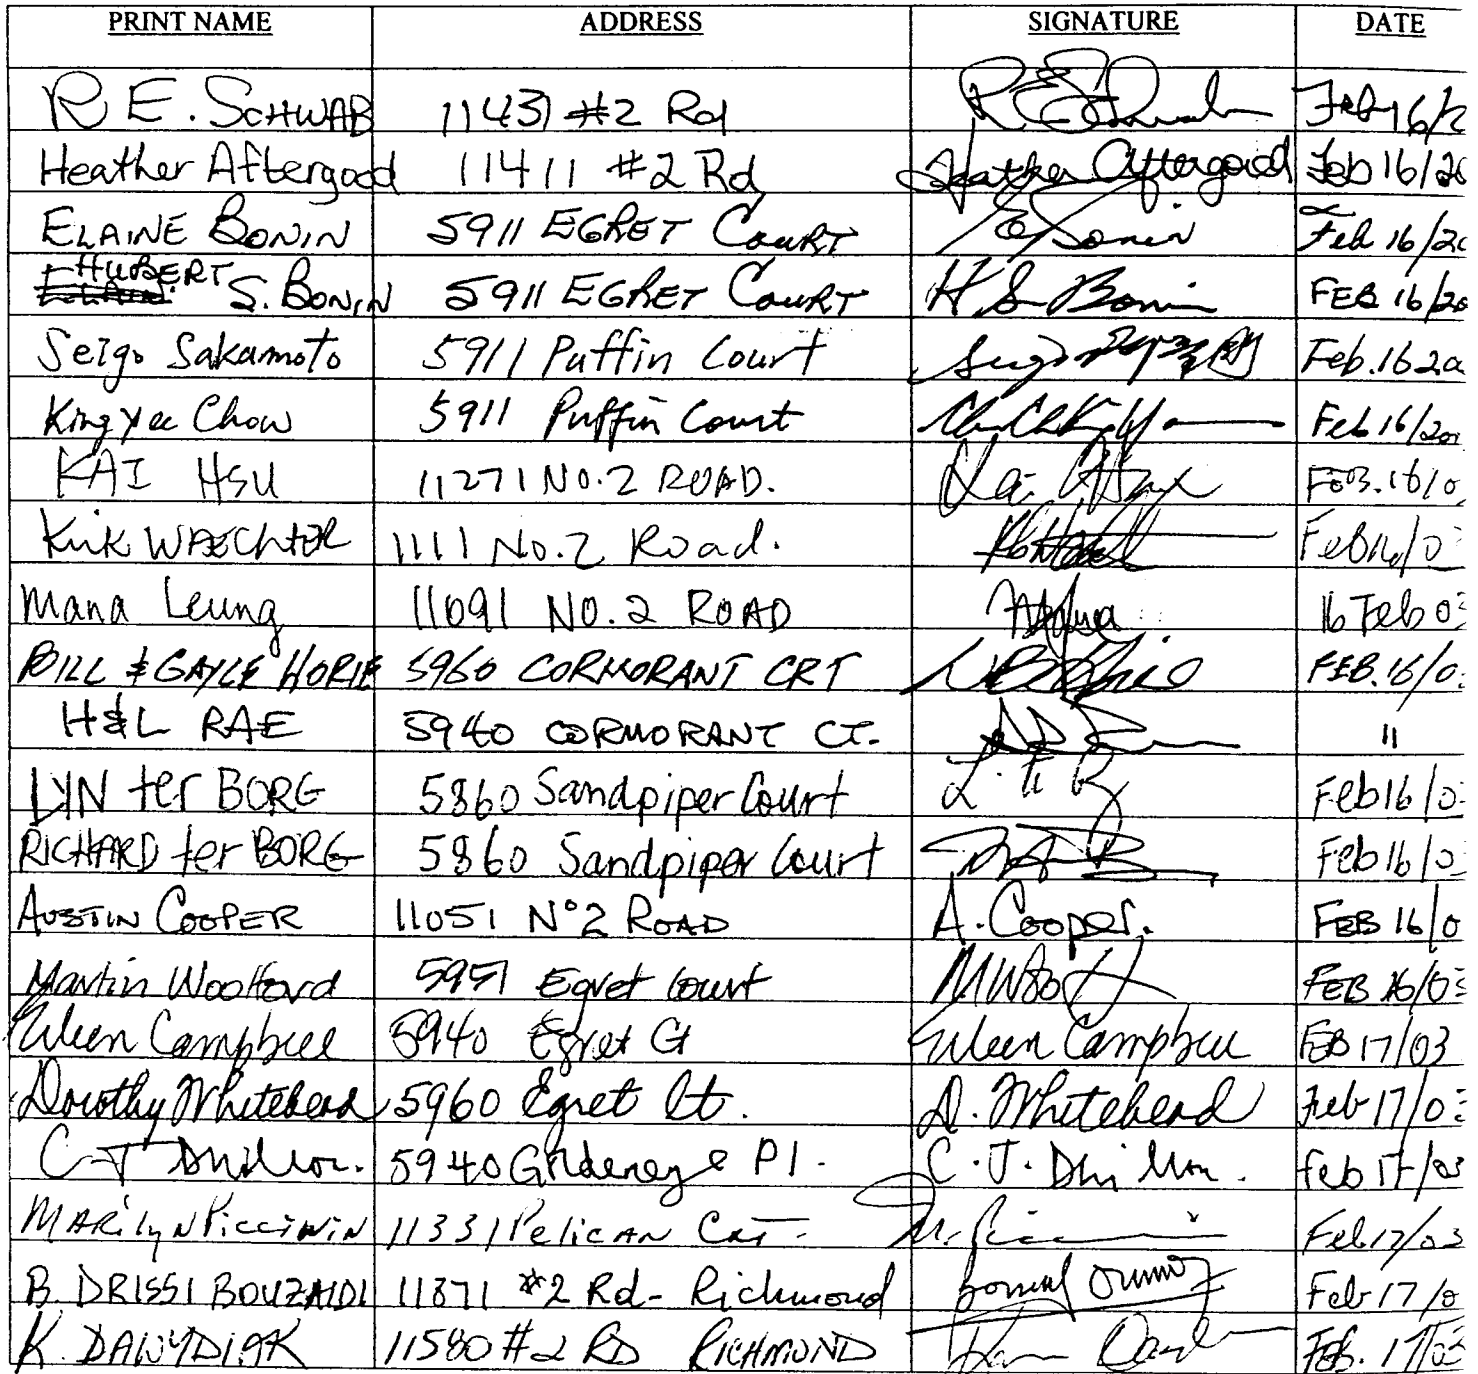 PRINT NAME ADDRESS SIGNATURE DATE
R E. SCHWAB 11431 #2 Rd Feb 16/2
Heather Aftergood 11411 #2 Rd Heather Aftergood Feb 16/20
ELAINE BONIN 5911 EGRET COURT E Bonin Feb 16/20
HUBERT S. BONIN 5911 EGRET COURT H S Bonin FEB 16/20
Seigo Sakamoto 5911 Puffin Court Feb. 16 20
King Yee Chow 5911 Puffin Court Feb 16/20
KAI HSU 11271 NO. 2 ROAD. Kai Hsu FEB. 16/0
Kirk WAECHTER 1111 No. 2 Road. Feb 16/0
Mana Leung 11091 NO. 2 ROAD 16 Feb 03
BILL & GAYLE HORIE 5960 CORMORANT CRT FEB. 16/0
H&L RAE 5940 CORMORANT CT. "
LYN ter BORG 5860 Sandpiper Court L. t B Feb 16/03
RICHARD ter BORG 5860 Sandpiper Court Feb 16/03
AUSTIN COOPER 11051 N°2 ROAD A. Cooper. FEB 16/0
Martin Woolford 5951 Egret Court FEB 16/03
Eileen Campbell 5940 Egret Ct Eileen Campbell FEB 17/03
Dorothy Whitehead 5960 Egret Ct. D. Whitehead Feb 17/03
C T Dhillon. 5940 Goldeneye Pl. C. T. Dhillon. Feb 17/03
MARILYN PICCININ 11331 PELICAN CRT. Feb 17/03
B. DRISSI BOUZAIDI 11371 #2 Rd - Richmond Feb 17/0
K. DAWYDIAK 11580 #2 RD RICHMOND Feb. 17/03